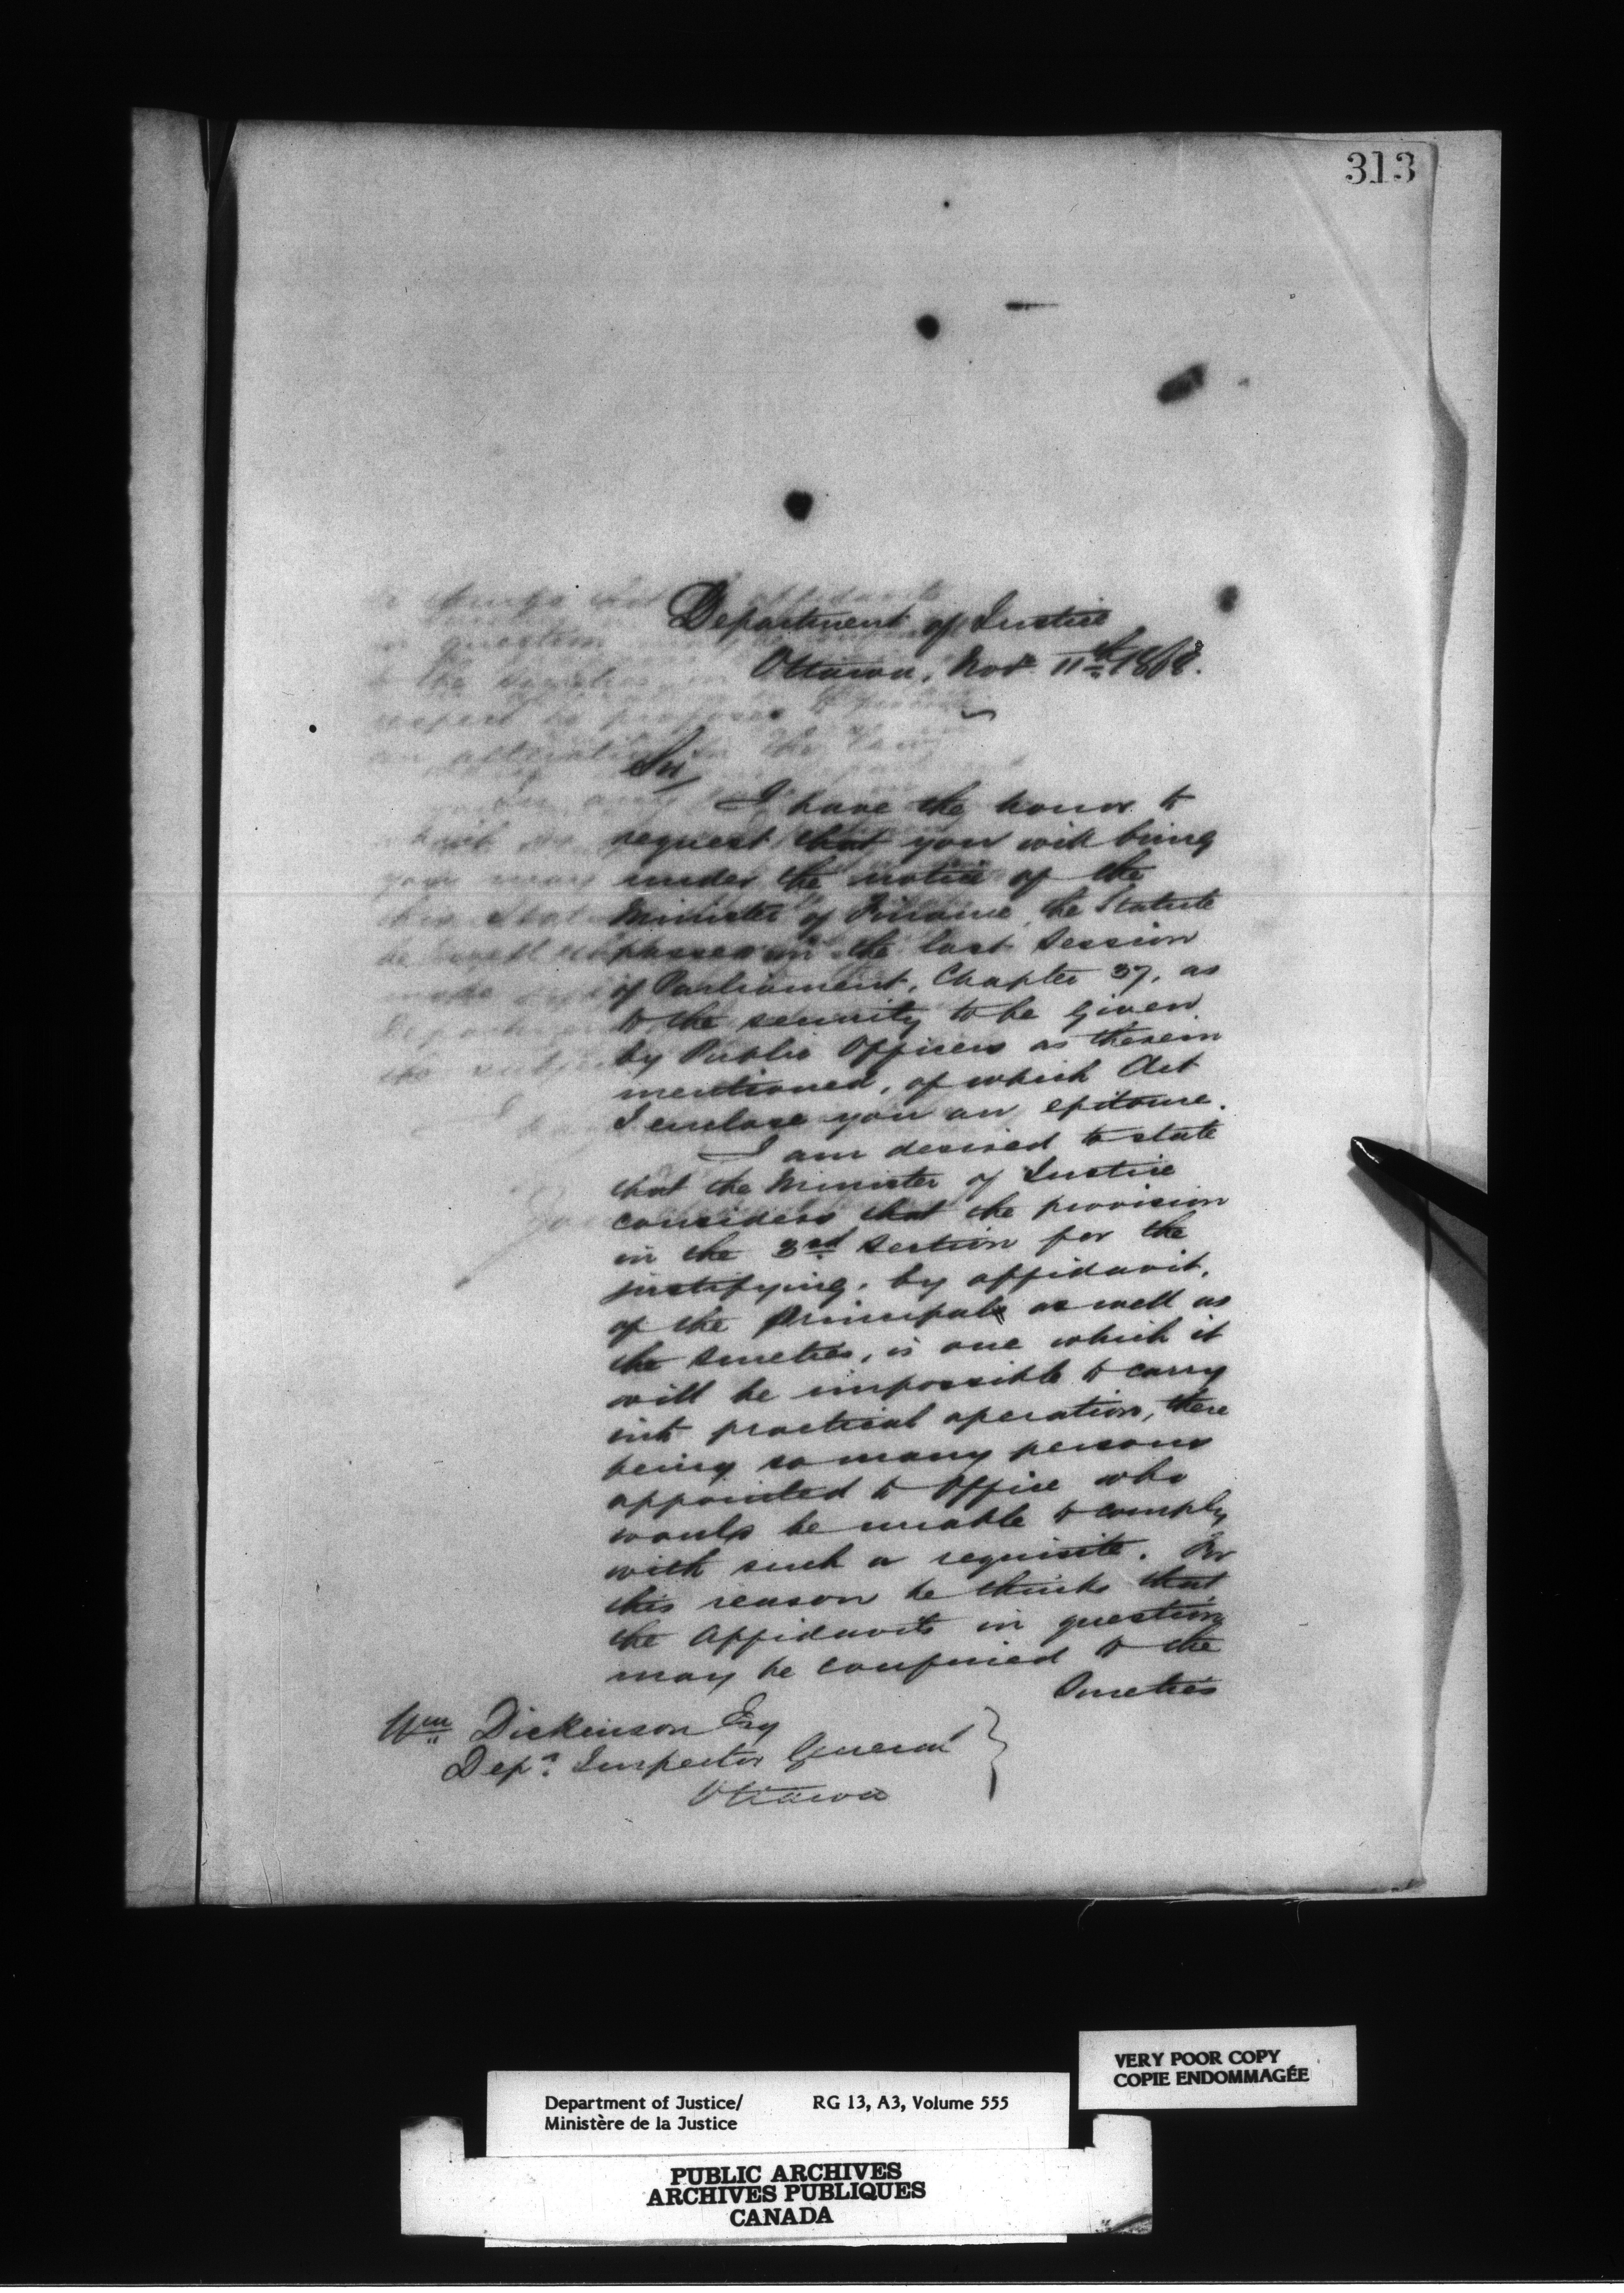 313
Department of Justice
Ottawa, Nov. 11th 1868.
Sir,
I have the honor to
request that you will bring
under the notice of the
Minister of Finance, the Statute
passed in the last Session
of Parliament, Chapter 37, as
to the security to be given
by Public Officers as therein
mentioned, of which Act
I enclose you an epitome.
I am desired to state
that the Minister of Justice
considers that the provision
in the 3rd Section for the
justifying, by affidavit,
of the Principal as well as
the Sureties, is one which it
will be impossible to carry
into practical operation, there
being so many persons
appointed to Office who
would be unable to comply
with such a requisite. For
this reason he thinks that
the Affidavits in question
may be confined to the
Sureties
Wm Dickinson Esq
Depy. Inspector General
Ottawa
VERY POOR COPY
COPIE ENDOMMAGÉE
Department of Justice/ RG 13, A3, Volume 555
Ministère de la Justice
PUBLIC ARCHIVES
ARCHIVES PUBLIQUES
CANADA